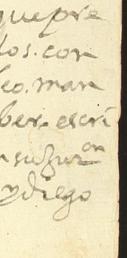 que pre
los. con
eo. man
ber. escri
n su Juron
y diego